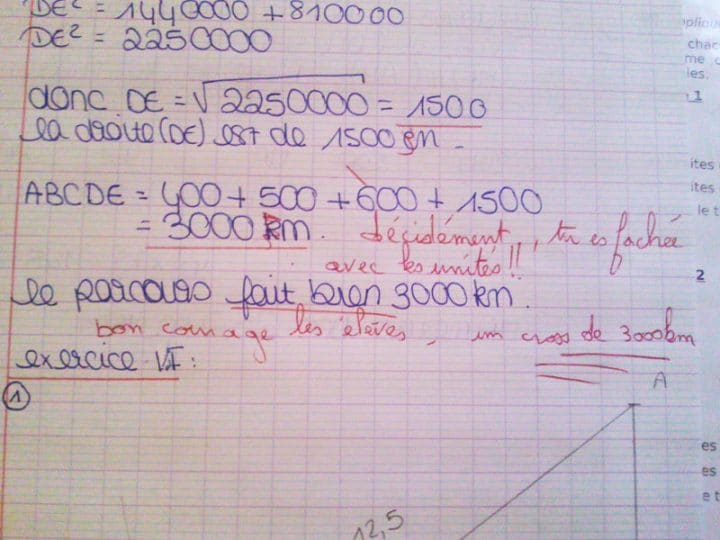 DE² = 1440000 + 810000
DE² = 2250000
donc DE = √2250000 = 1500
la droite (DE) est de 1500 m.
ABCDE = 400 + 500 + 600 + 1500
= 3000 km. décidément, tu es fachée
avec les unités !!
le parcours fait bien 3000 km.
bon courage les élèves, un cross de 3000km
exercice VI :
1
A
12,5
chac
me
les.
1
ites
ites
le t
2
es
es
e t